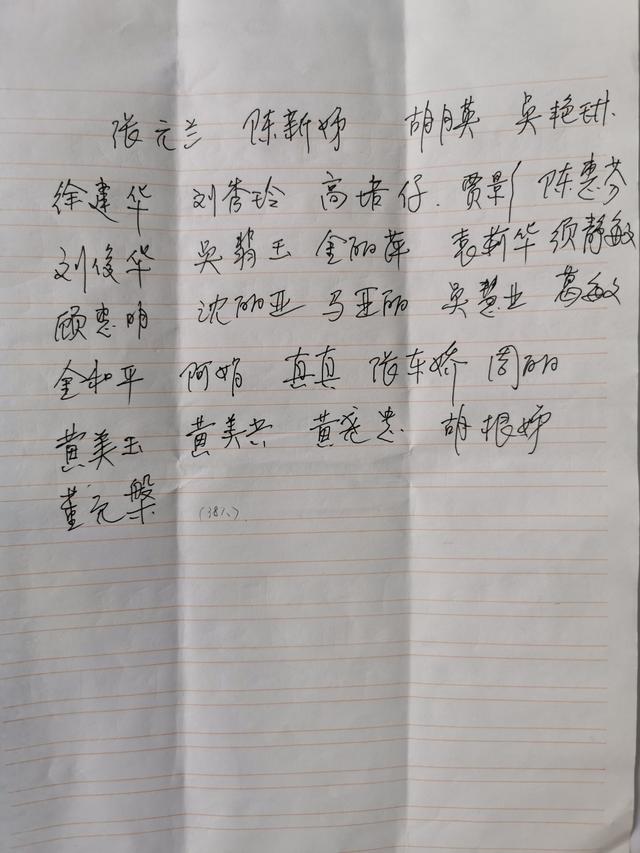 张元兰 陈新妤 胡月英 吴艳
徐建华 刘杏玲 高培仔. 贾影 陈惠芬
刘俊华 吴翡玉 金丽萍 袁莉华 须静敏
顾惠明 沈丽亚 马亚丽 吴慧业 葛敏
金和平 阿娟 真真 张车娇 周丽
黄美玉 黄美 黄 胡根妤
董元槃 (38人)